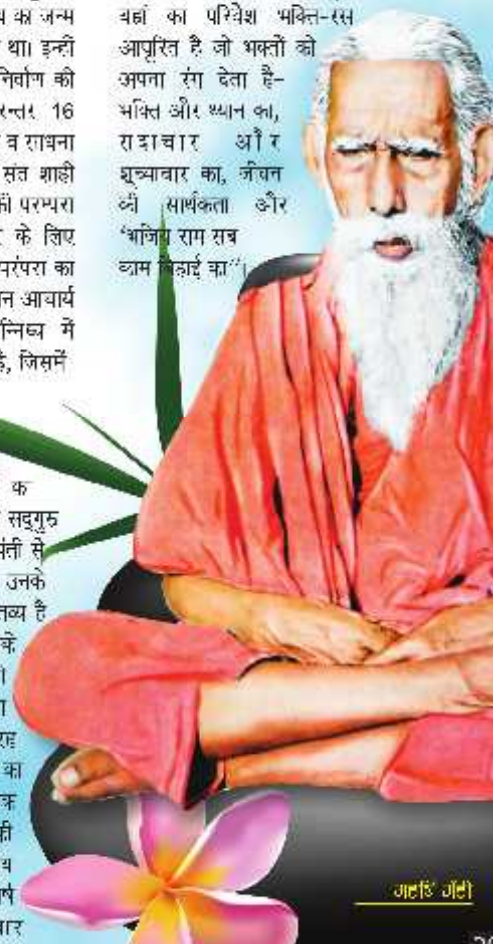 य का जन्म
था। इन्हीं
निर्वाण की
रन्तर 16
व साधना
संत शाही
की परम्परा
के लिए
परंपरा का
न आचार्य
न्निध्य में
है, जिसमें
क
सद्गुरु
ंती से
उनके
तव्य है
के
ी
ा
रह
का
क
ही
य
र्ष
ार
यहाँ का परिवेश भक्ति-रस
आपूरित है जो भक्तों को
अपना रंग देता है-
भक्ति और ध्यान का,
सदाचार और
शुच्याचार का, जीवन
की सार्थकता और
“भजिय राम सब
काम बिहाई का”।
महर्षि मेंही